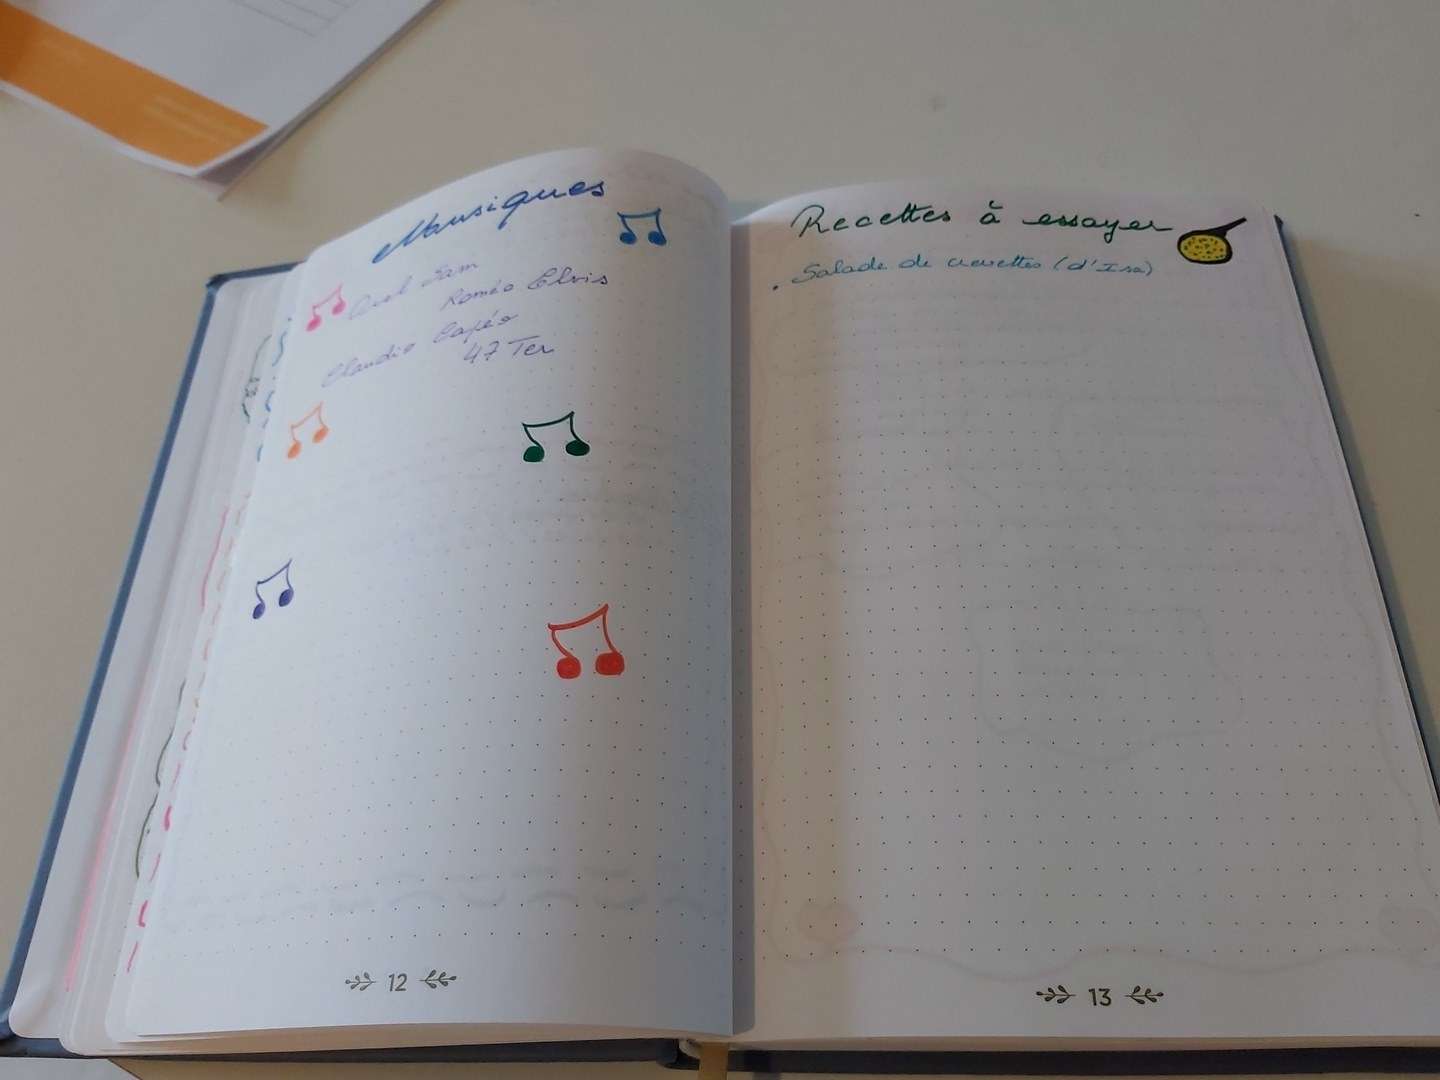 Musiques
Axel Sam
Roméo Elvis
Claudio Capéo
47 Ter
12
Recettes à essayer
. Salade de crevettes (d'Isa)
13